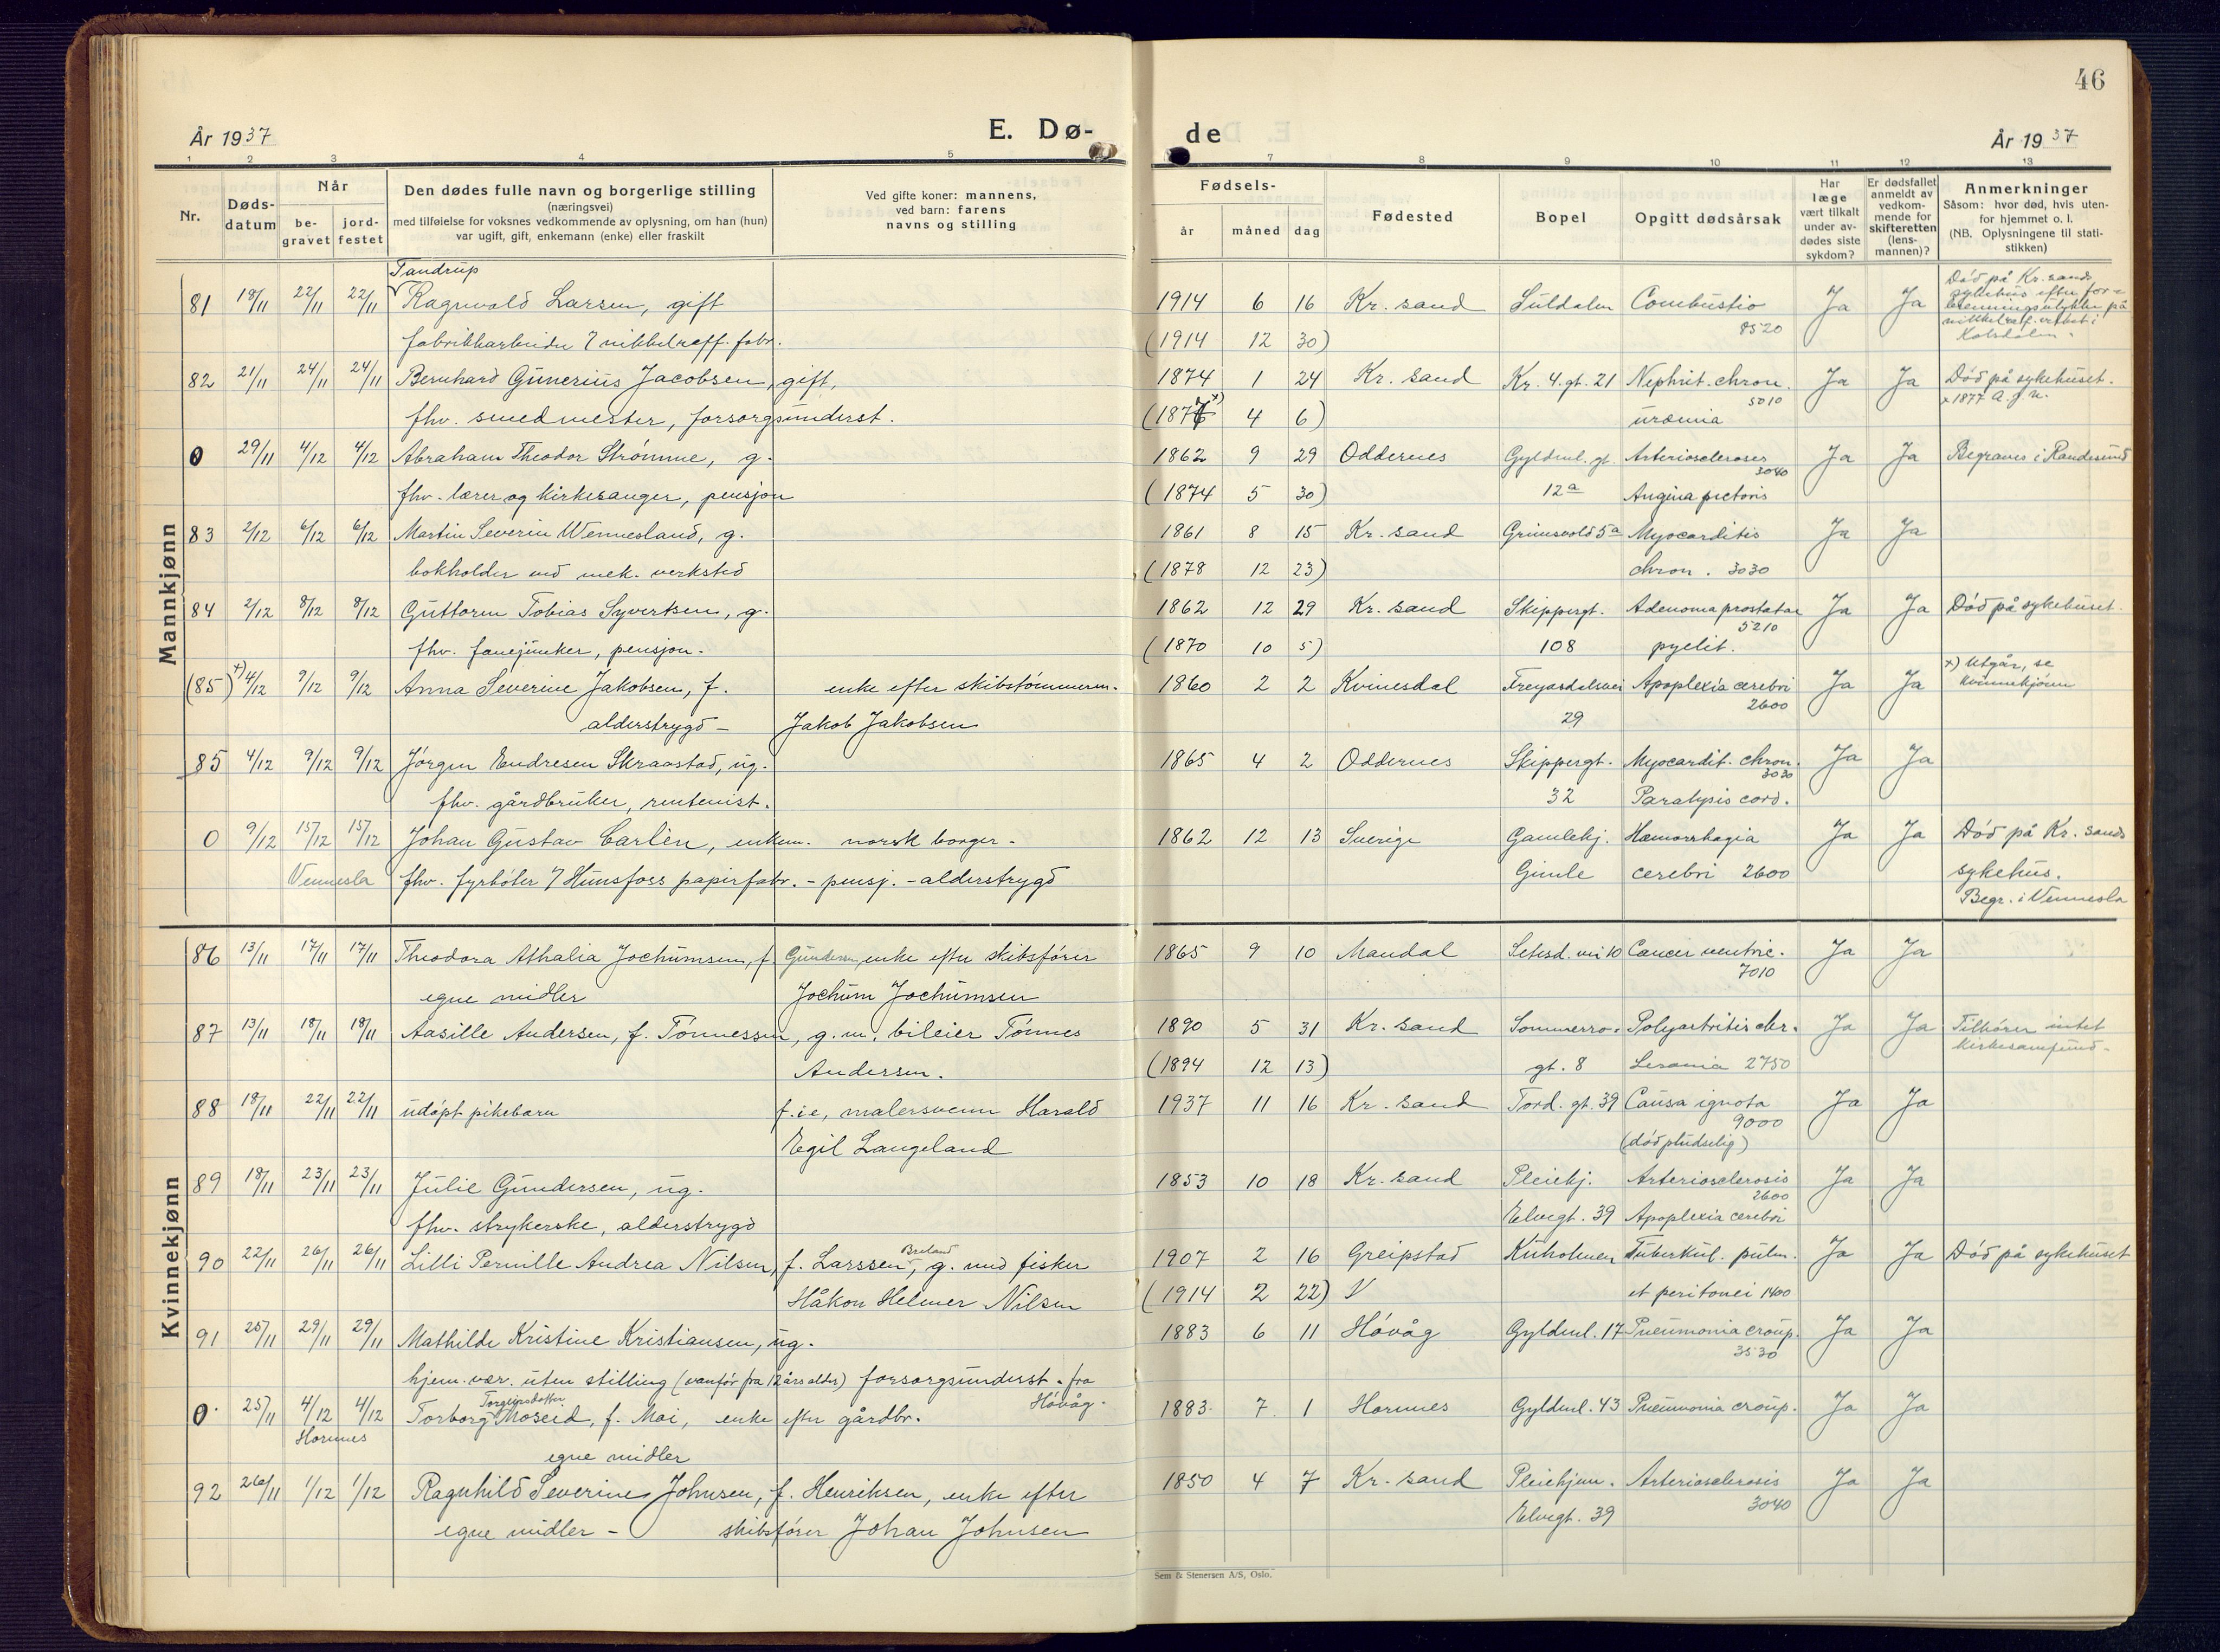 46
År 1937
E. Dø-
de
År 1937
1 2 3 4 5
7 8 9 10 11 12 13
Nr.
Døds-
datum
Når
be-
gravet
jord-
festet
Den dødes fulle navn og borgerlige stilling
(næringsvei)
med tilføielse for voksnes vedkommende av oplysning, om han (hun)
var ugift, gift, enkemann (enke) eller fraskilt
Ved gifte koner: mannens,
ved barn: farens
navns og stilling
Fødsels-
år
måned
dag
Fødested
Bopel
Opgitt dødsårsak
Har
læge
vært tilkalt
under av-
dødes siste
sykdom?
Er dødsfallet
anmeldt av
vedkom-
mende for
skifteretten
(lens-
mannen)?
Anmerkninger
Såsom: hvor død, hvis uten-
for hjemmet o. l.
(NB. Oplysningene til stati-
stikken)
Mannkjønn
Tandrup
81 18/11 22/11 22/11 Ragnvald Larsen, gift 1914 6 16 Kr. sand Suldalen Combustio 8520 Ja Ja Død på Kr. sands
sykehus efter for-
brenningsulykke på
fabrikkarbeider / nikkelraff. fabr. (1914 12 30)
82 21/11 24/11 24/11 Bernhard Gunerius Jacobsen, gift, 1874 1 24 Kr. sand Kr. 4. gt. 21 Nephrit. chron. 5010 Ja Ja Død på sykehuset.
x 1877
fhv. smedmester, forsorgsunderst. 4 6) uræmia
0 29/11 4/12 4/12 Abraham Theodor Strømme, g. 1862 9 29 Oddernes Gyldenl. gt. Arteriosclerosis 3040 Ja Ja Begraves i Randesund
fhv. lærer og kirkesanger, pensjon (1874 5 30) 12a Angina pectoris
83 2/12 6/12 6/12 Martin Severin Wennesland, g. 1861 8 15 Kr. sand Grimsvold 5a Myocarditis Ja Ja
bokholder ved mek. verksted (1878 12 23) chron. 3030
84 2/12 8/12 8/12 Guttorm Tobias Syvertsen, g. 1862 12 29 Kr. sand Skippergt. Adenoma prostatae 5210 Ja Ja Død på sykehuset.
fhv. fanejunker, pensjon. (1870 10 5) 108 pyelit.
(85) x) 4/12 9/12 9/12 Anna Severine Jakobsen, f. enke efter skibstømmerm. 1860 2 2 Kvinesdal Freyasdalsvei Apoplexia cerebri 2600 Ja Ja x) Utgår, se
Kvinnekjønn
alderstrygd – Jakob Jakobsen 29
85 4/12 9/12 9/12 Jørgen Endresen Skraastad, ug. 1865 4 2 Oddernes Skippergt. Myocardit. chron. 3030 Ja Ja
fhv. gårdbruker, rentenist. 32 Paralysis cord.
0 9/12 15/12 15/12 Johan Gustav Carlèn, enkem. norsk borger - 1862 12 13 Sverige Gamlehj. Hæmorrhagia Ja Ja Død på Kr. sands
Vennesla fhv. fyrbøter / Hunsfoss papirfabr. - pensj. - alderstrygd Gimle cerebri 2600 sykehus.
Begr. i Vennesla
Kvinnekjønn
86 13/11 17/11 17/11 Theodora Athalia Jochumsen, f. Gundersen, enke efter skibsfører 1865 9 10 Mandal Setesd. vei 10 Cancer ventric. 7010 Ja Ja
egne midler Jochum Jochumsen
87 13/11 18/11 18/11 Aasille Andersen, f. Tønnessen, g. m. bileier Tønnes 1890 5 31 Kr. sand Sommerro- Polyartritis chr. Ja Ja Tilhører intet
kirkesamfund.
Andersen. (1894 12 13) gt. 8 2750
88 18/11 22/11 22/11 udøpt pikebarn f. i e, malersvenn Harald 1937 11 16 Kr. sand Tord. gt. 39 Causa ignota 9000 Ja Ja
Egil Langeland (død pludselig)
89 18/11 23/11 23/11 Julie Gundersen, ug. 1853 10 18 Kr. sand Pleiehj. Arteriosclerosis 2600 Ja Ja
fhv. strykerske, alderstrygd Elvegt. 39 Apoplexia cerebri
90 22/11 26/11 26/11 Lilli Pernille Andrea Nilsen, f. Larssen Breland, g. med fisker 1907 2 16 Greipstad Kuholmen Tuberkul. pulm. Ja Ja Død på sykehuset
Håkon Helmer Nilsen (1914 2 22) V et peritonei 1400
91 25/11 29/11 29/11 Mathilde Kristine Kristiansen, ug. 1883 6 11 Høvåg Gyldenl. 17 Pneumonia croup. 3530 Ja Ja
hjem. vær. uten stilling (vanfør fra 12 års alder) forsorgsunderst. fra
Høvåg.
0 25/11 4/12 4/12 Torborg Torgeirsdotter Moseid, f. Moi, enke efter gårdbr. 1883 7 1 Hornnes Gyldenl. 43 Pneumonia croup. Ja Ja
Hornnes egne midler
92 26/11 1/12 1/12 Ragnhild Severine Johnsen, f. Henriksen, enke efter 1850 4 7 Kr. sand Pleiehjem. Arteriosclerosis 3040 Ja Ja
egne midler – skibsfører Johan Johnsen Elvegt. 39
Sem & Stenersen A/S, Oslo.